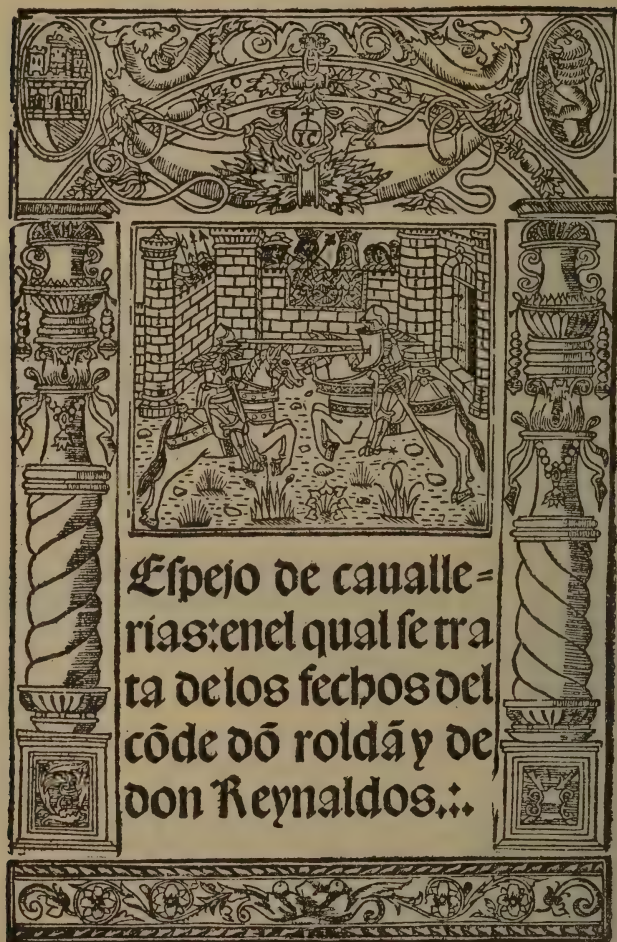 Espejo de caualle=
rias: enel qual se tra
ta delos fechos del
cõde dõ roldã y de
don Reynaldos.:.